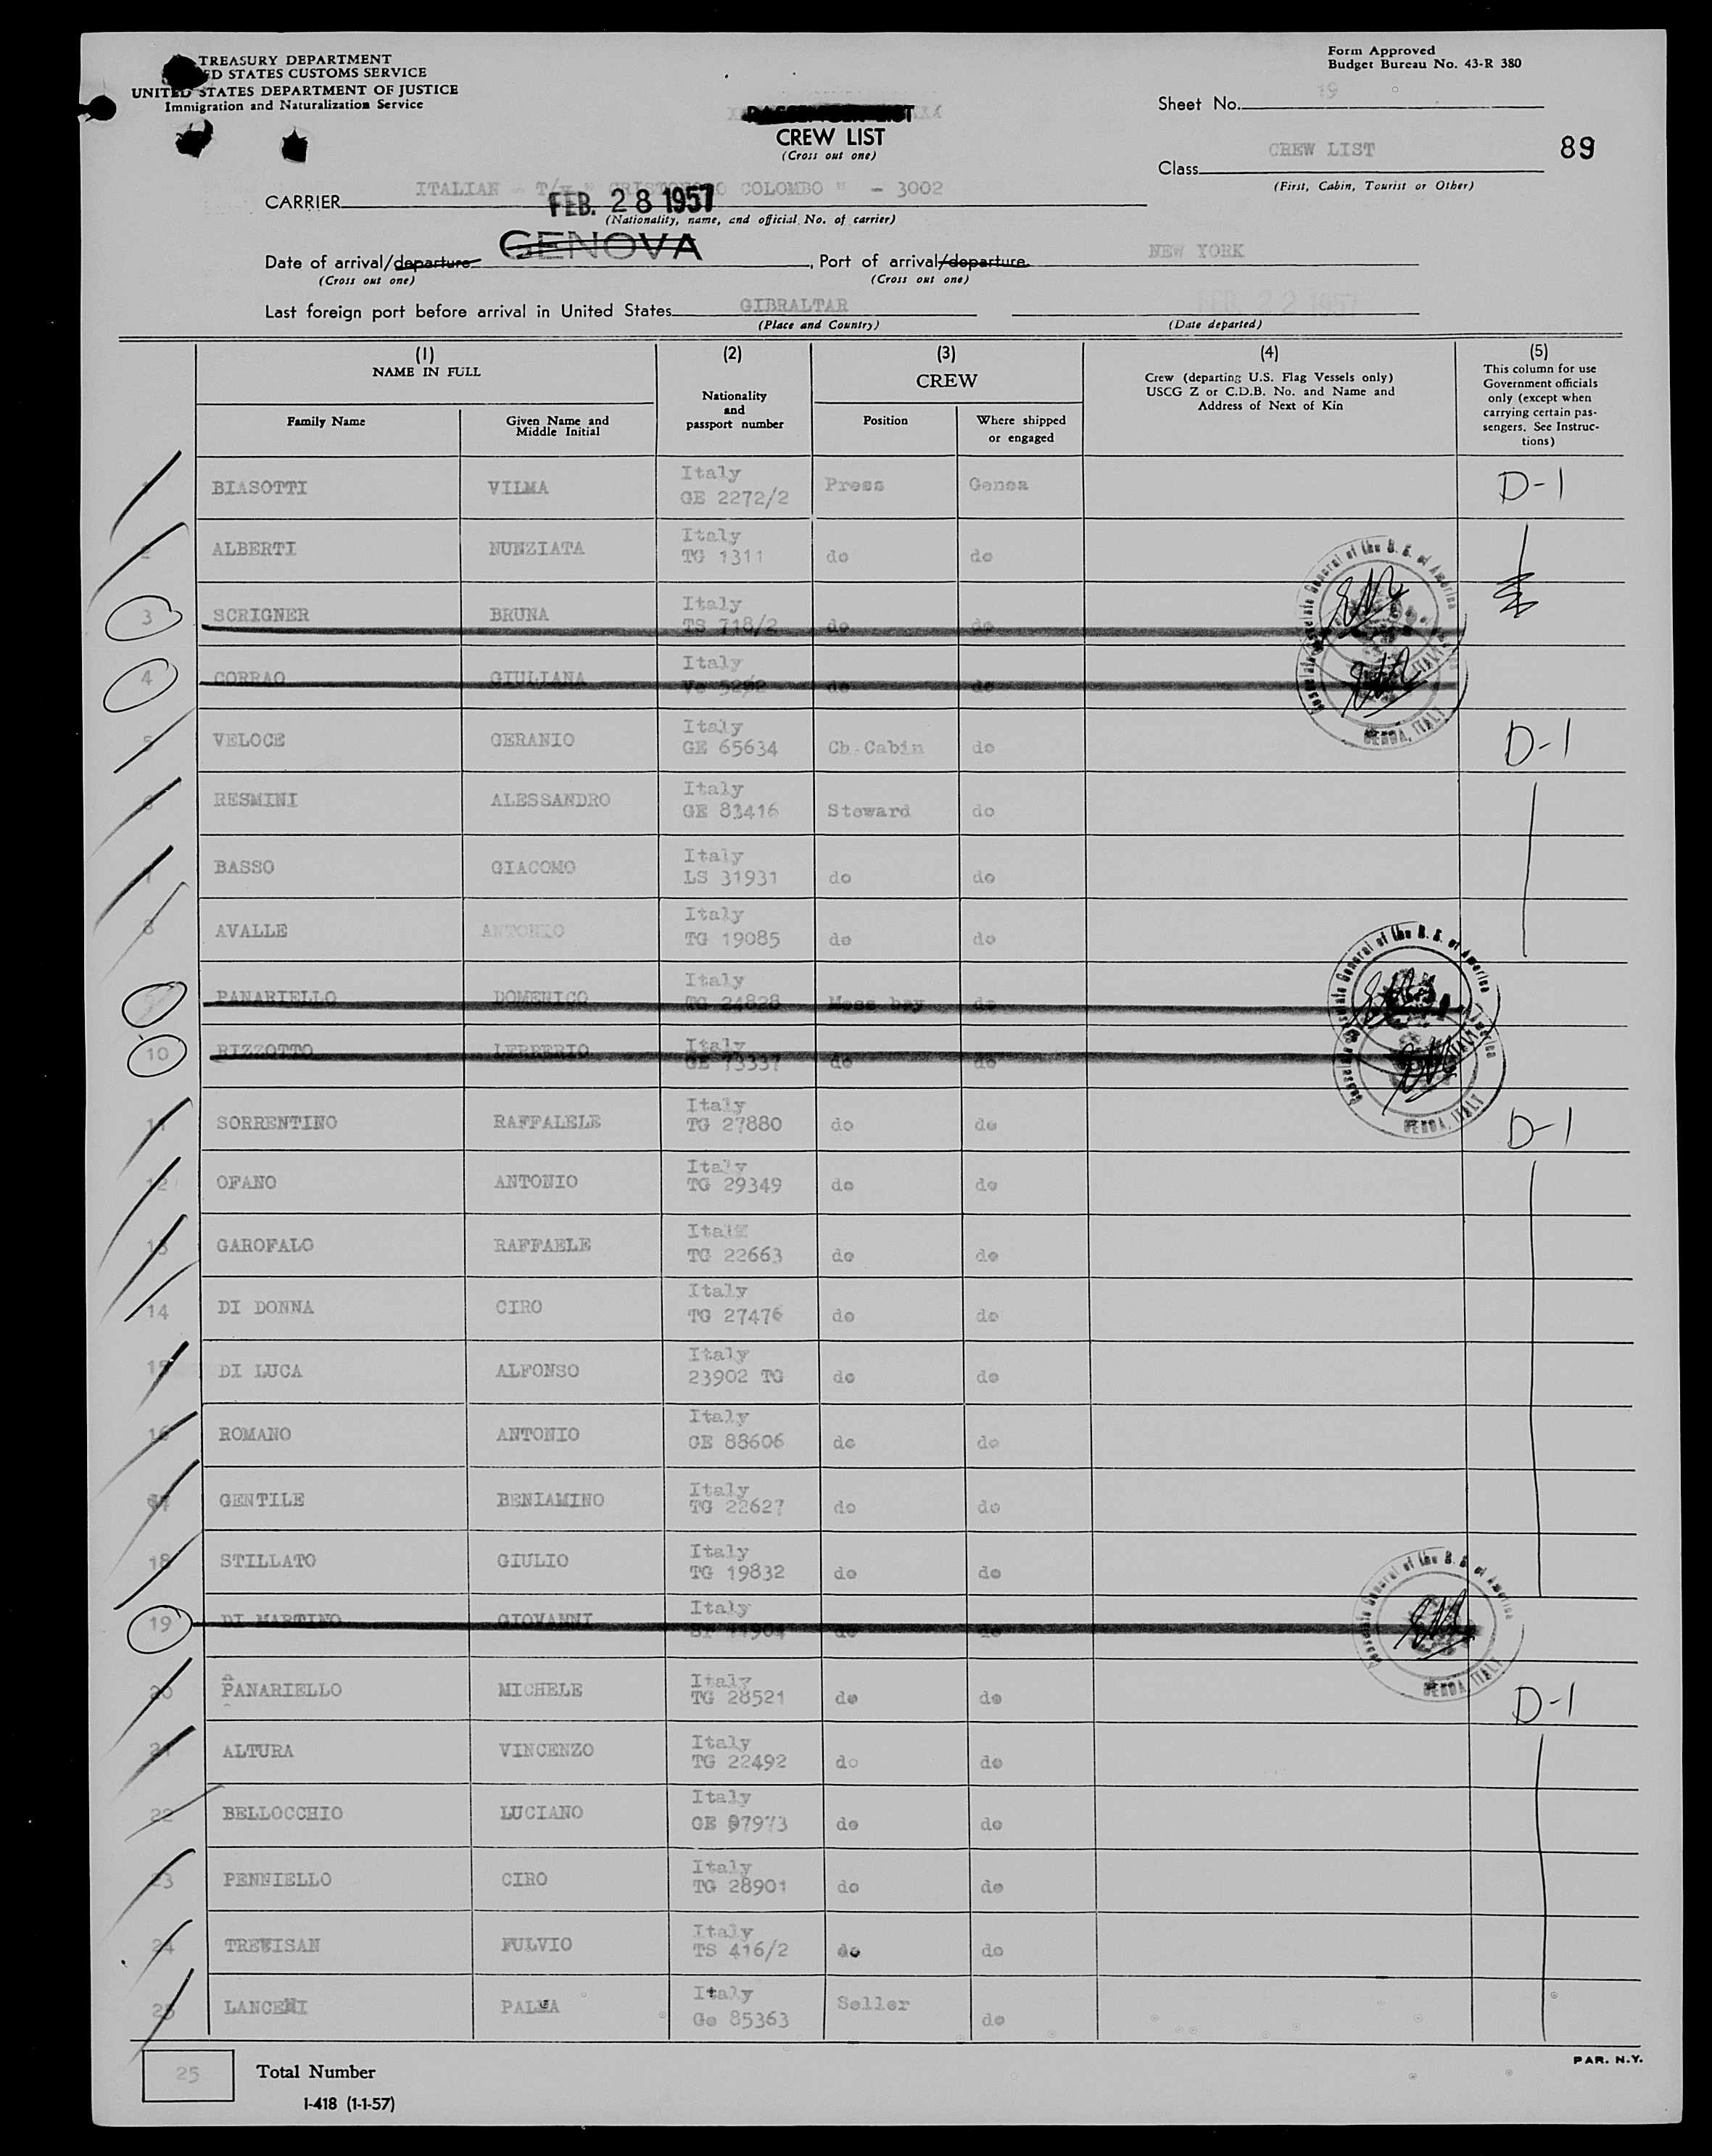 TREASURY DEPARTMENT
ED STATES CUSTOMS SERVICE
UNITED STATES DEPARTMENT OF JUSTICE
Immigration and Naturalization Service
Form Approved
Budget Bureau No. 43-R 380
PASSENGER LIST
CREW LIST
(Cross out one)
Sheet No. 19
Class CREW LIST
(First, Cabin, Tourist or Other)
89
CARRIER ITALIAN - T/n " CRISTOFORO COLOMBO " - 3002
(Nationality, name, and official No. of carrier)
FEB. 28 1957
GENOVA
Date of arrival/departure , Port of arrival/departure NEW YORK
(Cross out one) (Cross out one)
Last foreign port before arrival in United States GIBRALTAR FEB 22 1957
(Place and Country) (Date departed)
(1) NAME IN FULL
Family Name
Given Name and Middle Initial
(2) Nationality and passport number
(3) CREW
Position
Where shipped or engaged
(4) Crew (departing U.S. Flag Vessels only) USCG Z or C.D.B. No. and Name and Address of Next of Kin
(5) This column for use Government officials only (except when carrying certain passengers. See Instructions)
1 BIASOTTI VILMA Italy GE 2272/2 Press Genoa D-1
2 ALBERTI NUNZIATA Italy TG 1311 do do
3 SCRIGNER BRUNA Italy TS 718/2 do do
4 CORRAO GIULIANA Italy do do
5 VELOCE GERANIO Italy GE 65634 Ch.Cabin do D-1
6 RESMINI ALESSANDRO Italy GE 83416 Steward do
7 BASSO GIACOMO Italy LS 31931 do do
8 AVALLE ANTONIO Italy TG 19085 do do
9 PANARIELLO DOMENICO Italy TG 24828 Mess boy do
10 RIZZOTTO Italy GE 73337 do do
11 SORRENTINO RAFFALELE Italy TG 27880 do do D-1
12 OFANO ANTONIO Italy TG 29349 do do
13 GAROFALO RAFFAELE Italy TG 22663 do do
14 DI DONNA CIRO Italy TG 27476 do do
15 DI LUCA ALFONSO Italy 23902 TG do do
16 ROMANO ANTONIO Italy GE 88606 do do
17 GENTILE BENIAMINO Italy TG 22627 do do
18 STILLATO GIULIO Italy TG 19832 do do
19 DI MARTINO GIOVANNI Italy do do
20 PANARIELLO MICHELE Italy TG 28521 do do D-1
21 ALTURA VINCENZO Italy TG 22492 do do
22 BELLOCCHIO LUCIANO Italy GE 97973 do do
23 PENNIELLO CIRO Italy TG 28901 do do
24 TREVISAN FULVIO Italy TS 416/2 do do
25 LANCENI PALMA Italy Ge 85363 Seller do
Consulate General of the U. S. of America
GENOA, ITALY
Consulate General of the U. S. of America
GENOA, ITALY
Consulate General of the U. S. of America
GENOA, ITALY
25 Total Number
I-418 (1-1-57)
PAR. N.Y.